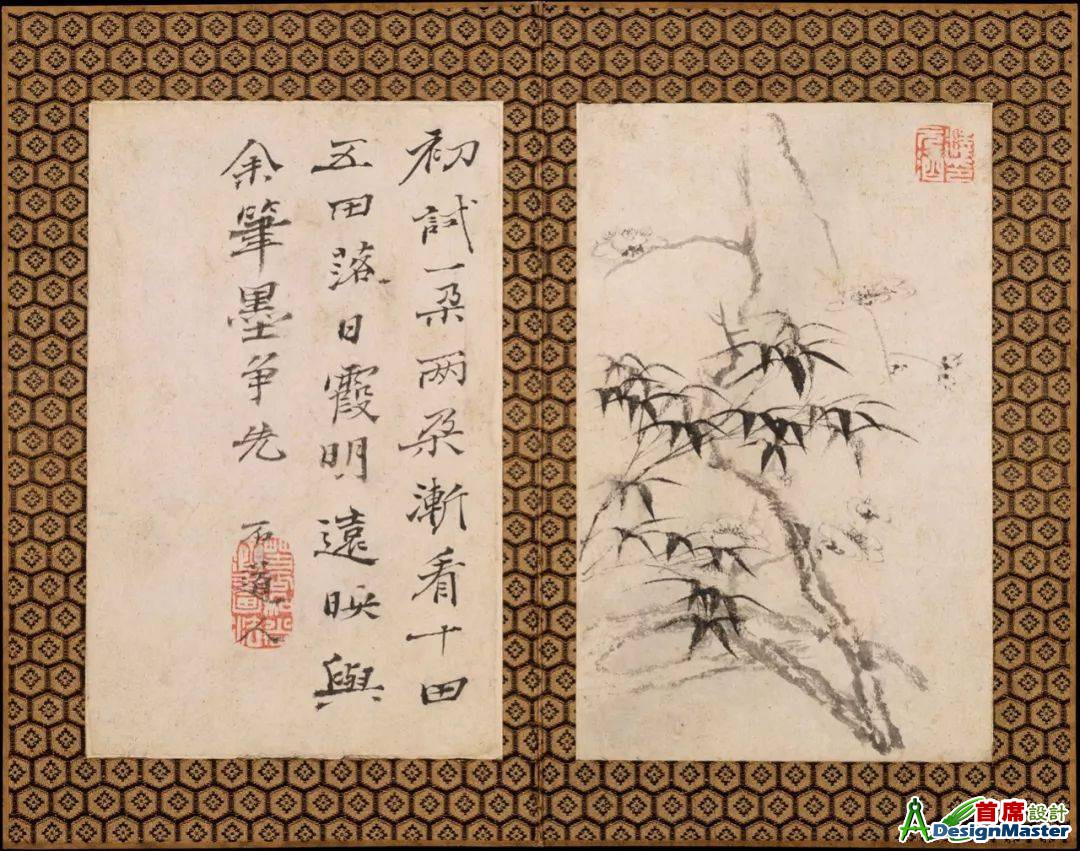 初試一朵兩朵漸看十田
五田落日霞明遠映與
余筆墨爭先
石道人
首席設計
DesignMaster